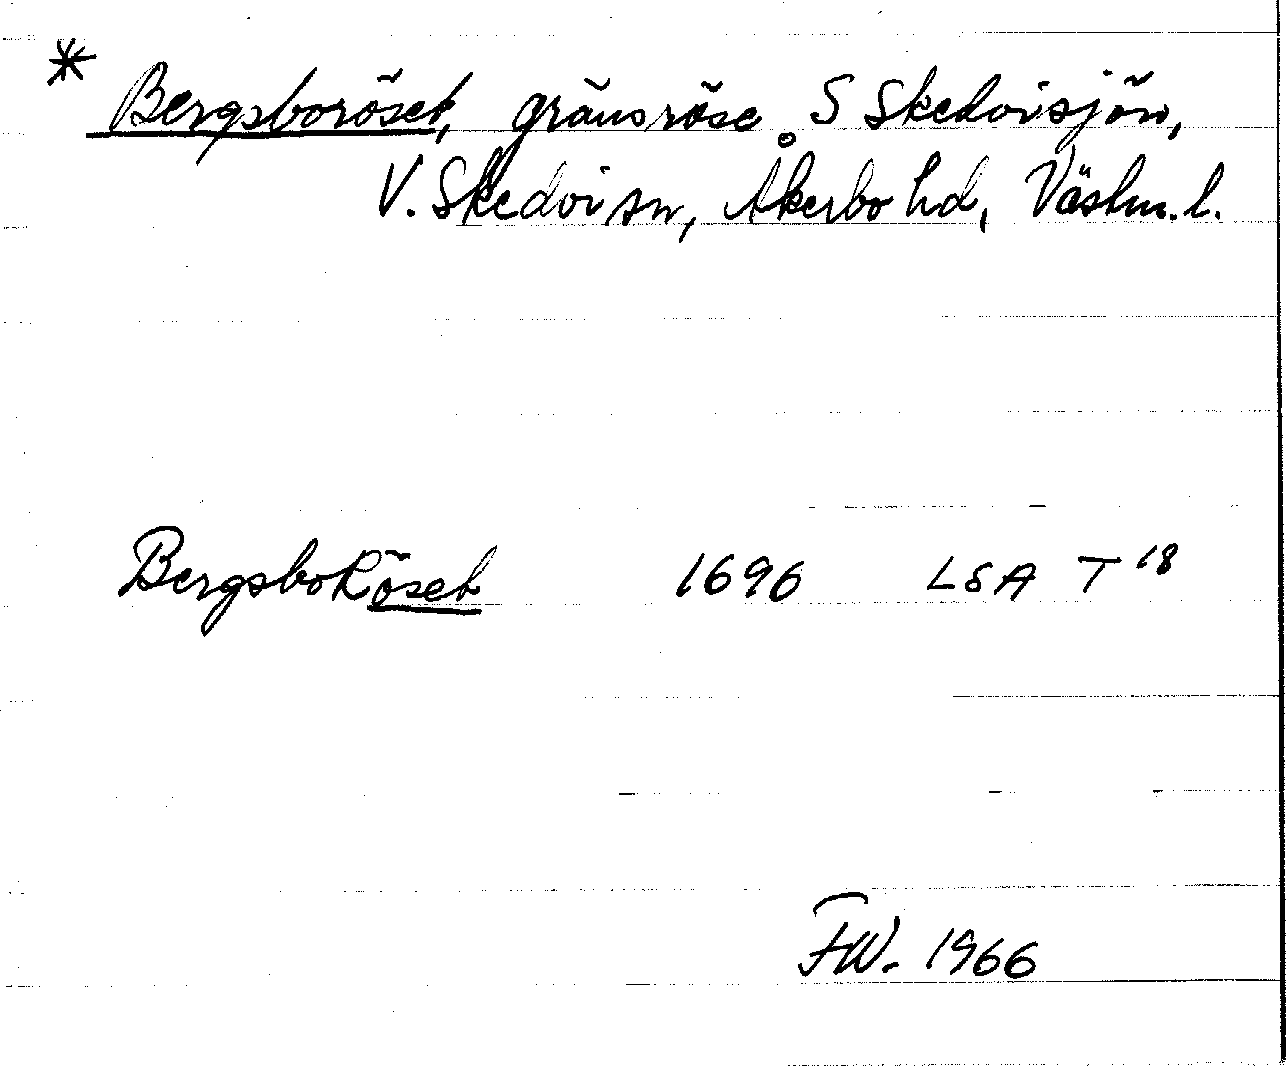 * Bergsboröset, gränsröse S Skedvisjön,
V. Skedvi sn, Åkerbo hd, Västm. l.
BergsboRöset 1696 LSA T 18
FW. 1966